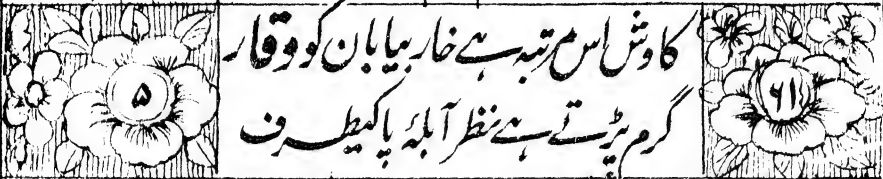 ۶۱
کاوش اس مرتبہ ہے خار بیابان کو وقار
گرم پڑتے ہے نظر آبلۂ پاکیطرف
۵